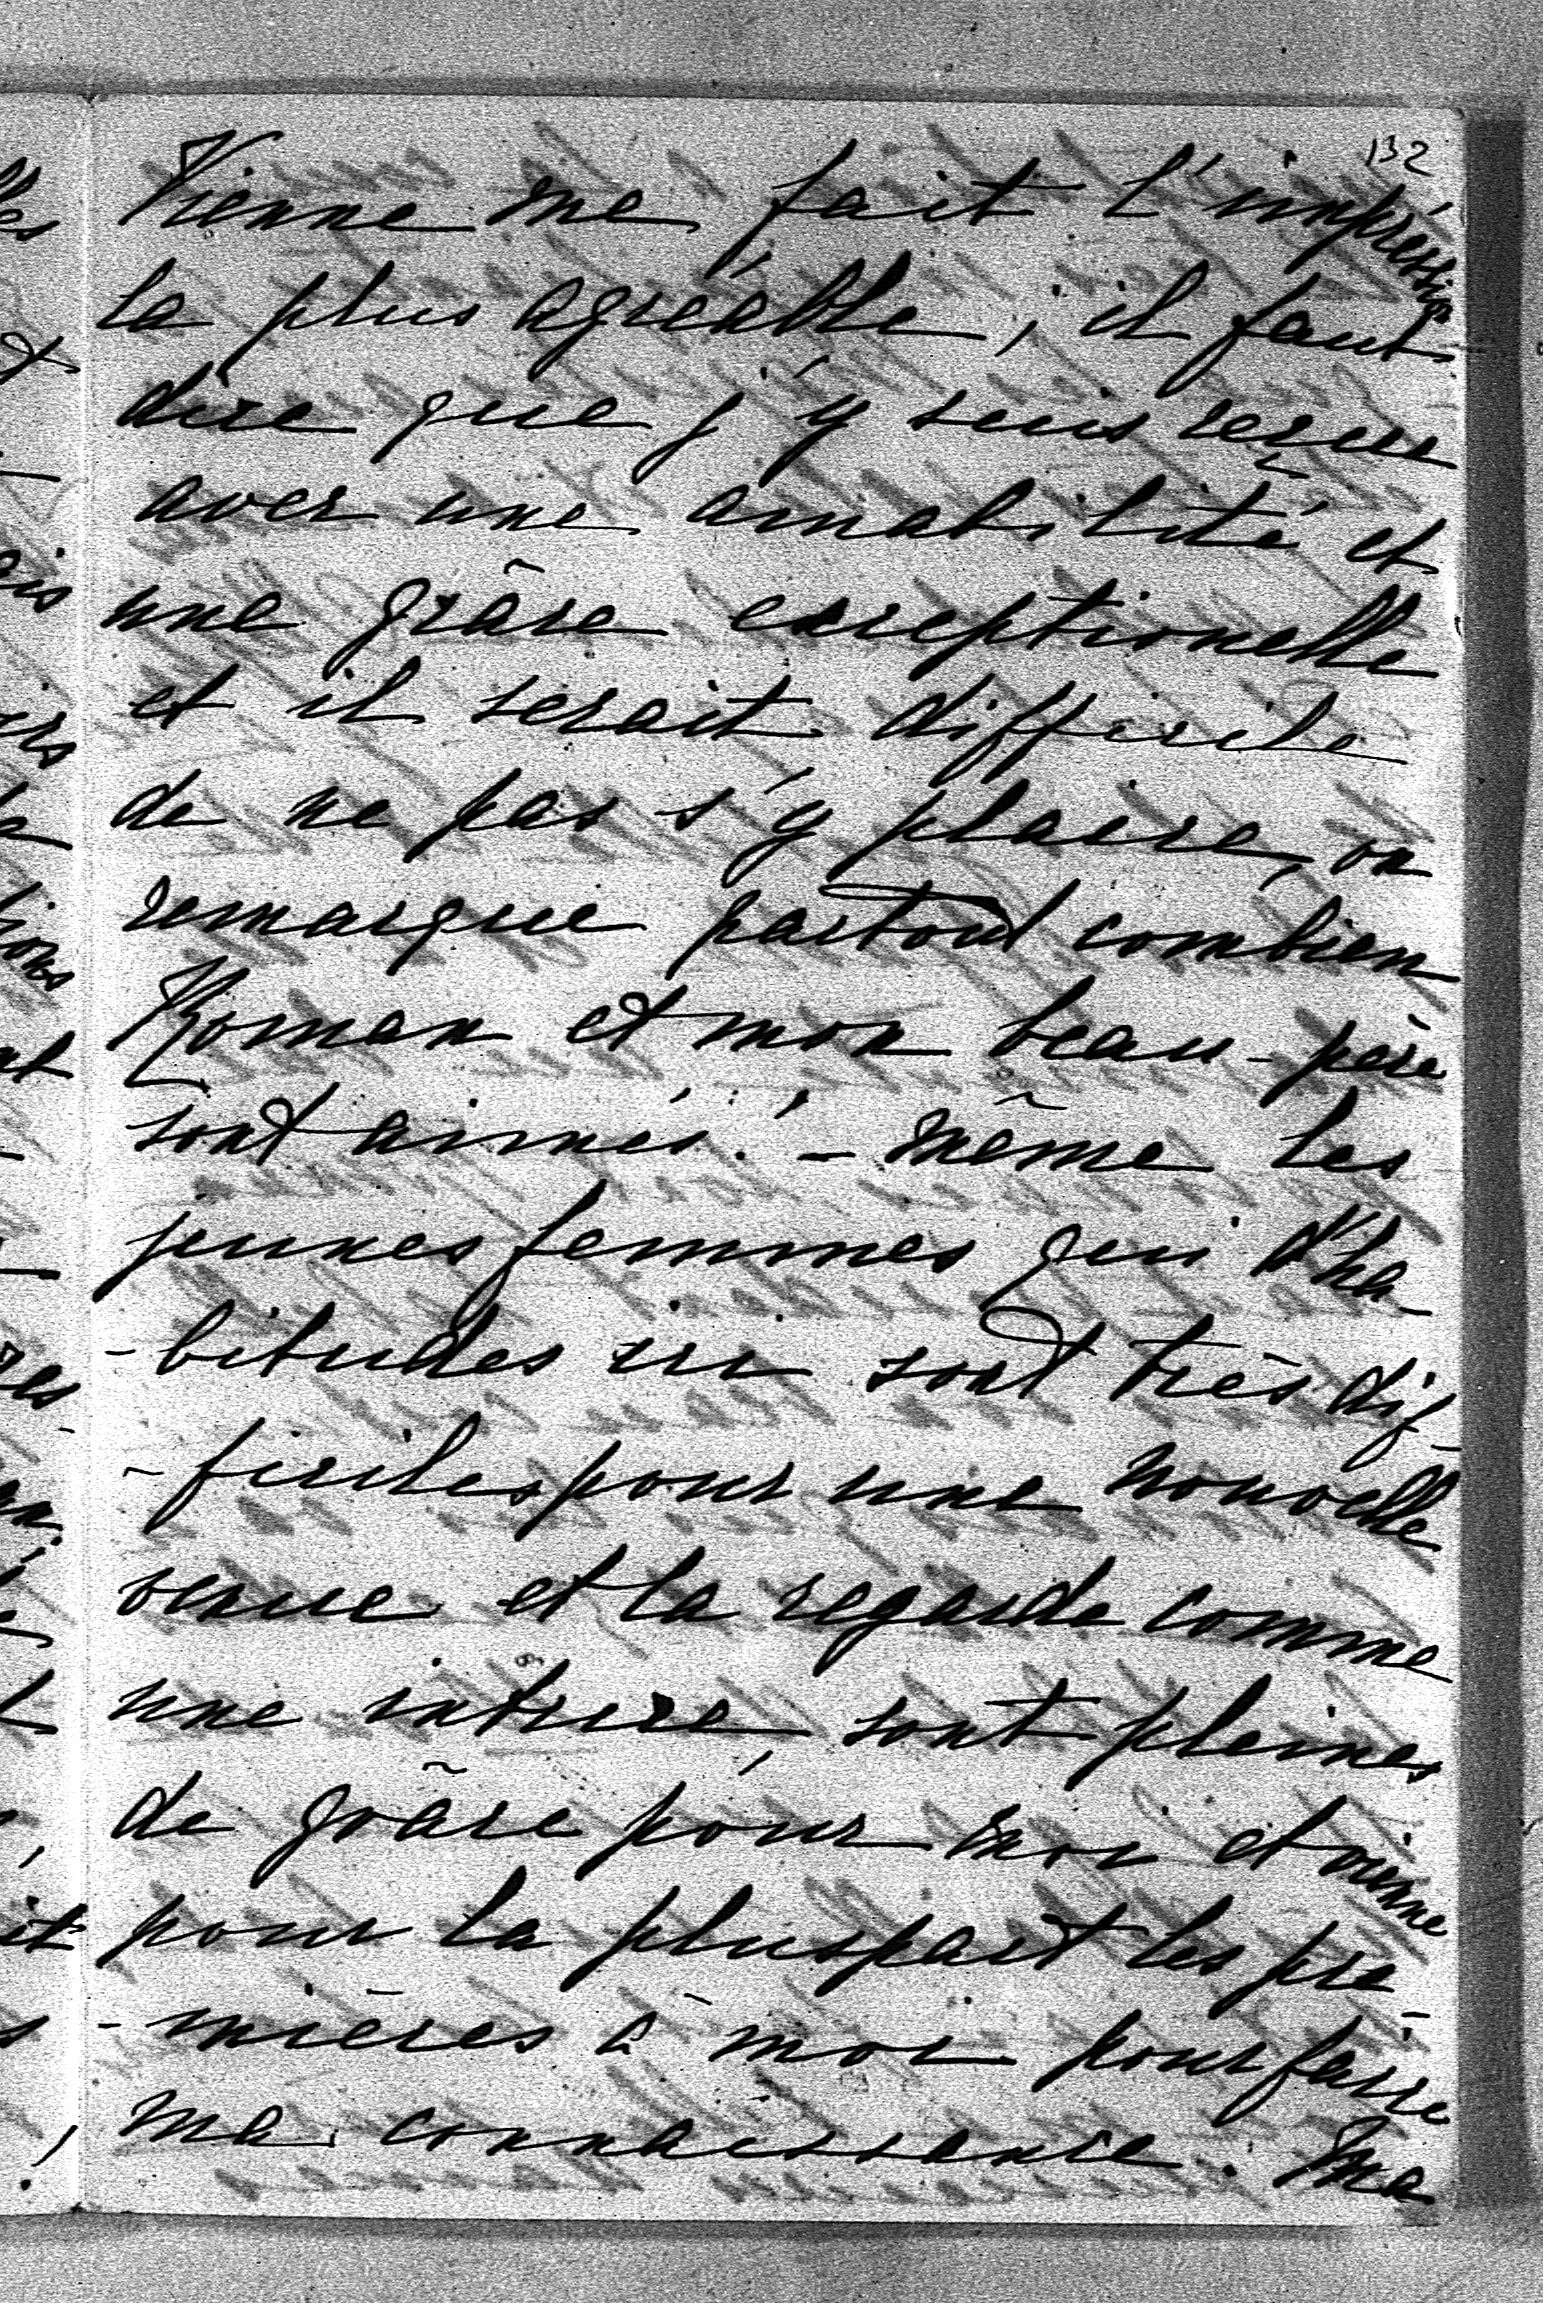 132
Vienne me fait l'impression
la plus agréable, il faut
dire que j'y suis reçue
avec une amabilité et
une grâce exceptionelle
et il serait difficile
de ne pas s'y plaire, on
remarque partout combien
Roman et mon beau-père
sont aimés! - même les
jeunes femmes qui d'ha-
-bitudes ici sont très dif-
-ficiles pour une nouvelle
venue et la regarde comme
une intruse, sont pleines
de grâce pour moi et
pour la pluspart les pre-
-mières à moi pour faire
ma connaissance. Ma